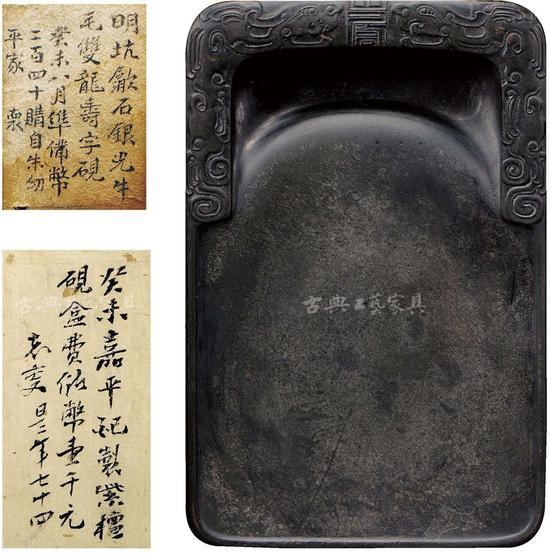 明坑歙石銀光牛
毛雙龍壽字硯
癸未八月準備幣
二百四十購自朱幼
平家 袁
癸未嘉平製紫檀
硯盒費幣壹千元
年七十四
古典工艺家具
古典工艺家具